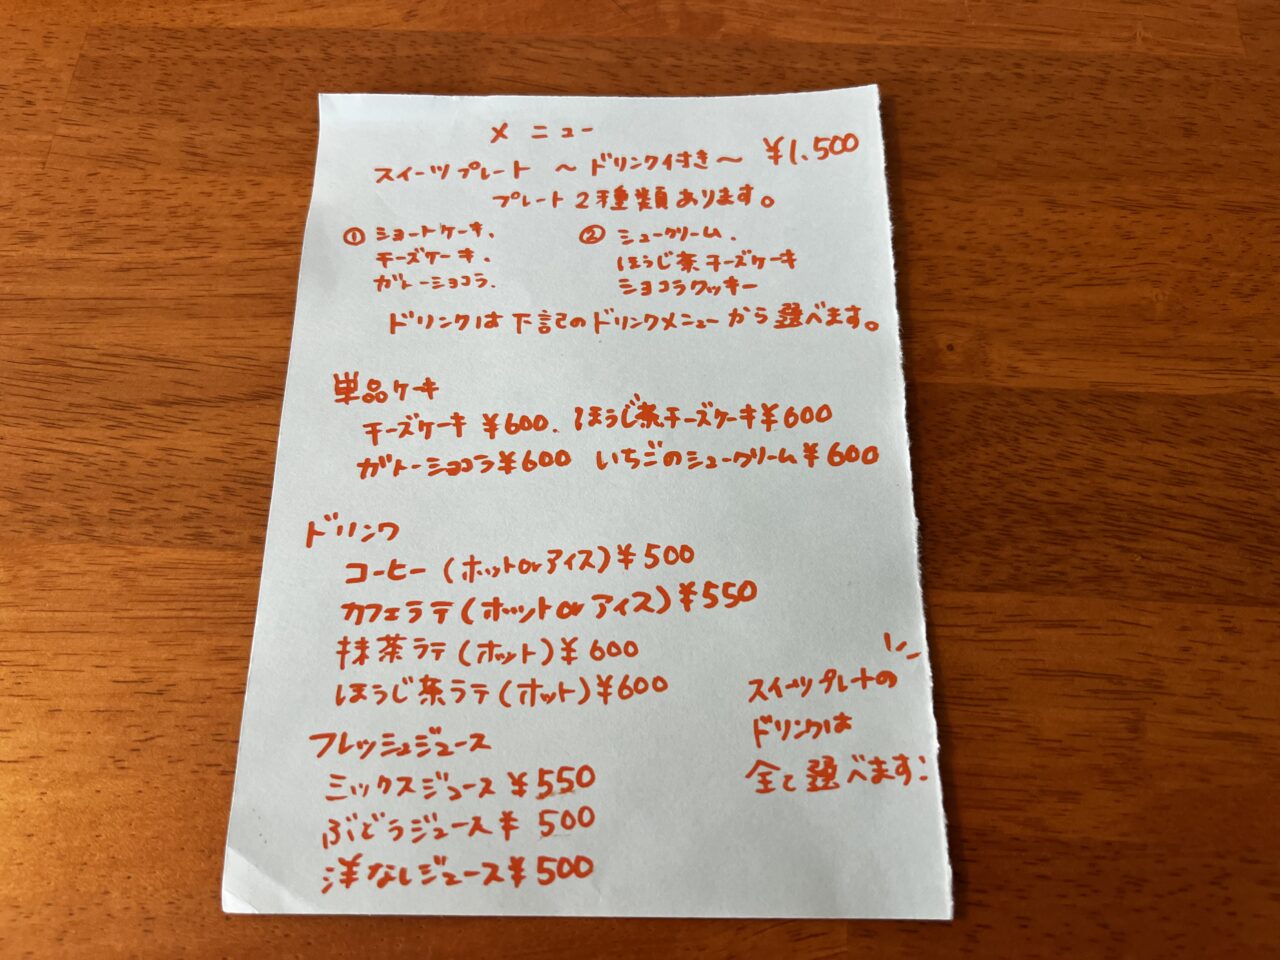 メニュー
スイーツプレート 〜ドリンク付き〜 ¥1,500
プレート2種類あります。
① ショートケーキ、
チーズケーキ、
ガトーショコラ、
② シュークリーム、
ほうじ茶チーズケーキ
ショコラクッキー
ドリンクは下記のドリンクメニューから選べます。
単品ケーキ
チーズケーキ ¥600、ほうじ茶チーズケーキ¥600
ガトーショコラ¥600 いちごのシュークリーム¥600
ドリンク
コーヒー(ホットorアイス)¥500
カフェラテ(ホットorアイス)¥550
抹茶ラテ(ホット)¥600
ほうじ茶ラテ(ホット)¥600
フレッシュジュース
ミックスジュース ¥550
ぶどうジュース¥ 500
洋なしジュース¥500
スイーツプレートの
ドリンクは
全て選べます: